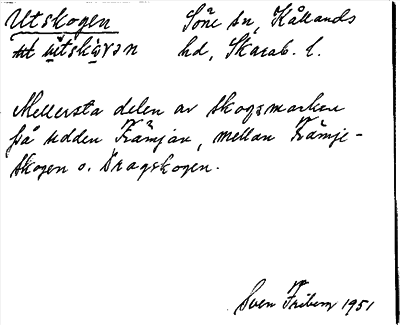 Utskogen
Söne sn, Kållands
utskåʒən
hd, Skarab. l.
Mellersta delen av skogsmarken
på udden Främjan, mellan Främje-
skogen o. Dragskogen.
Sven Friberg 1951